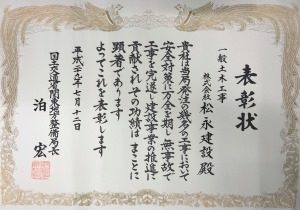 表彰状
一般土木工事
株式会社 松永建設 殿
貴社は当局発注の幾多の工事において
安全対策に万全を期し無事故で
工事を完遂し建設事業の推進に
貢献されその功績はまことに
顕著であります
よってこれを表彰します
平成二十九年七月十二日
国土交通省関東地方整備局長
泊 宏